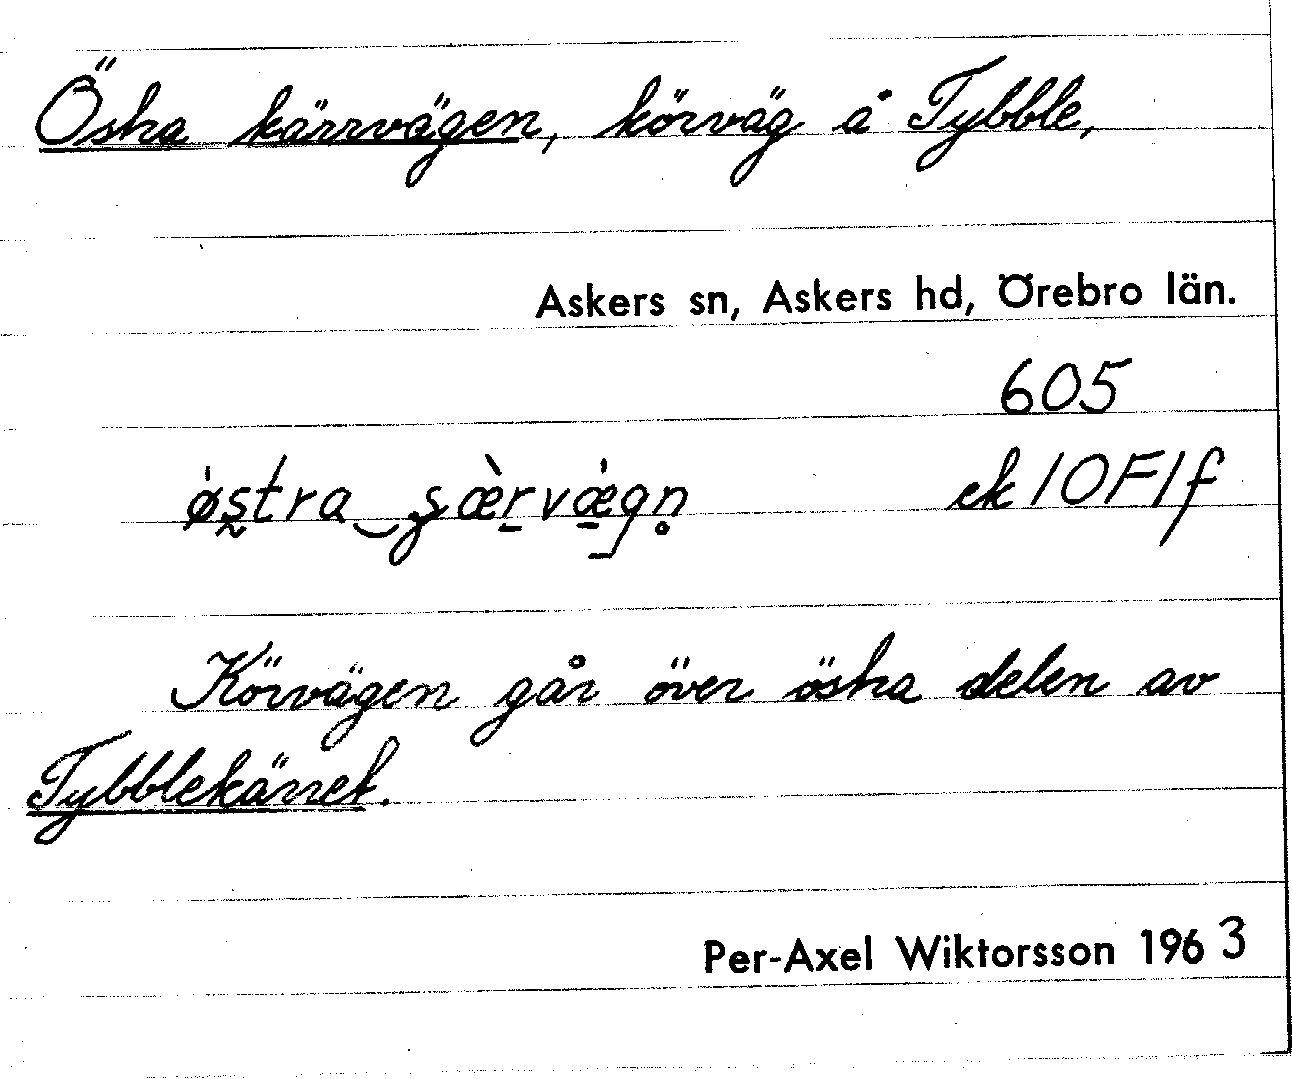 Östra kärrvägen, körväg å Tybble,
Askers sn, Askers hd, Örebro län.
605
östra särvägn ek 10F1f
Körvägen går över östra delen av
Tybblekärret.
Per-Axel Wiktorsson 1963